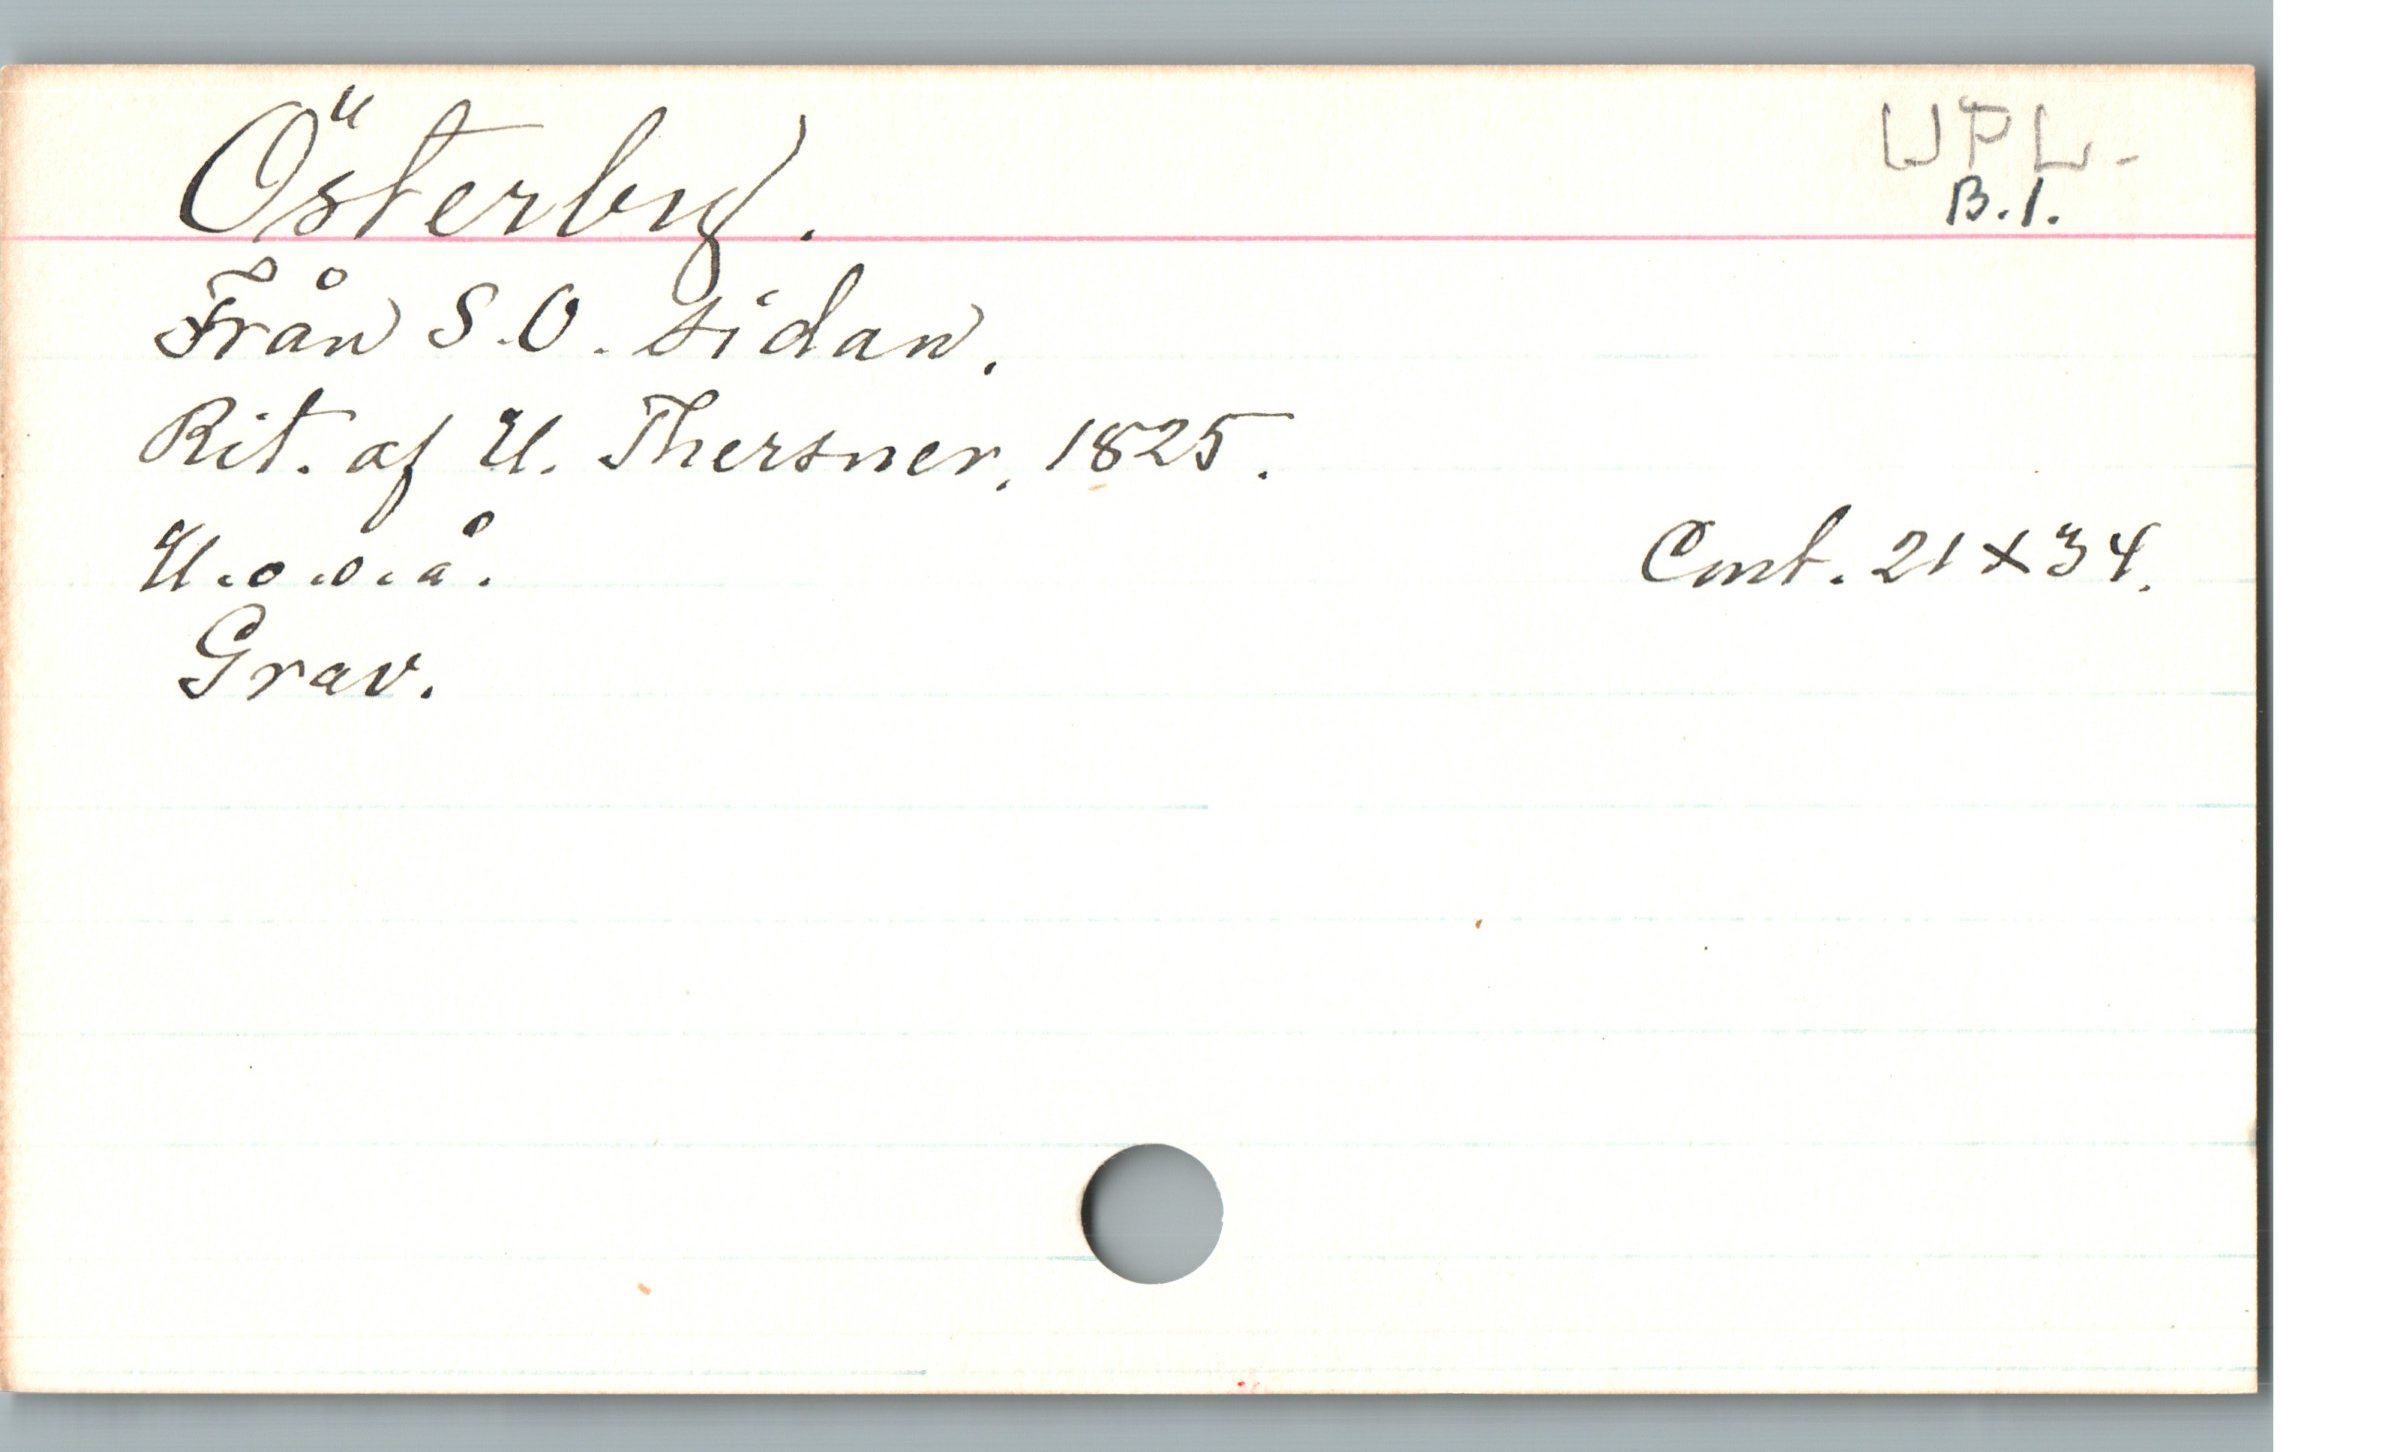 Österby.
UPL.
B.1.
Från S.O. sidan.
Rit. af U. Thersner, 1825.
U.o.o.å.
Cmt. 21 x 34.
Grav.